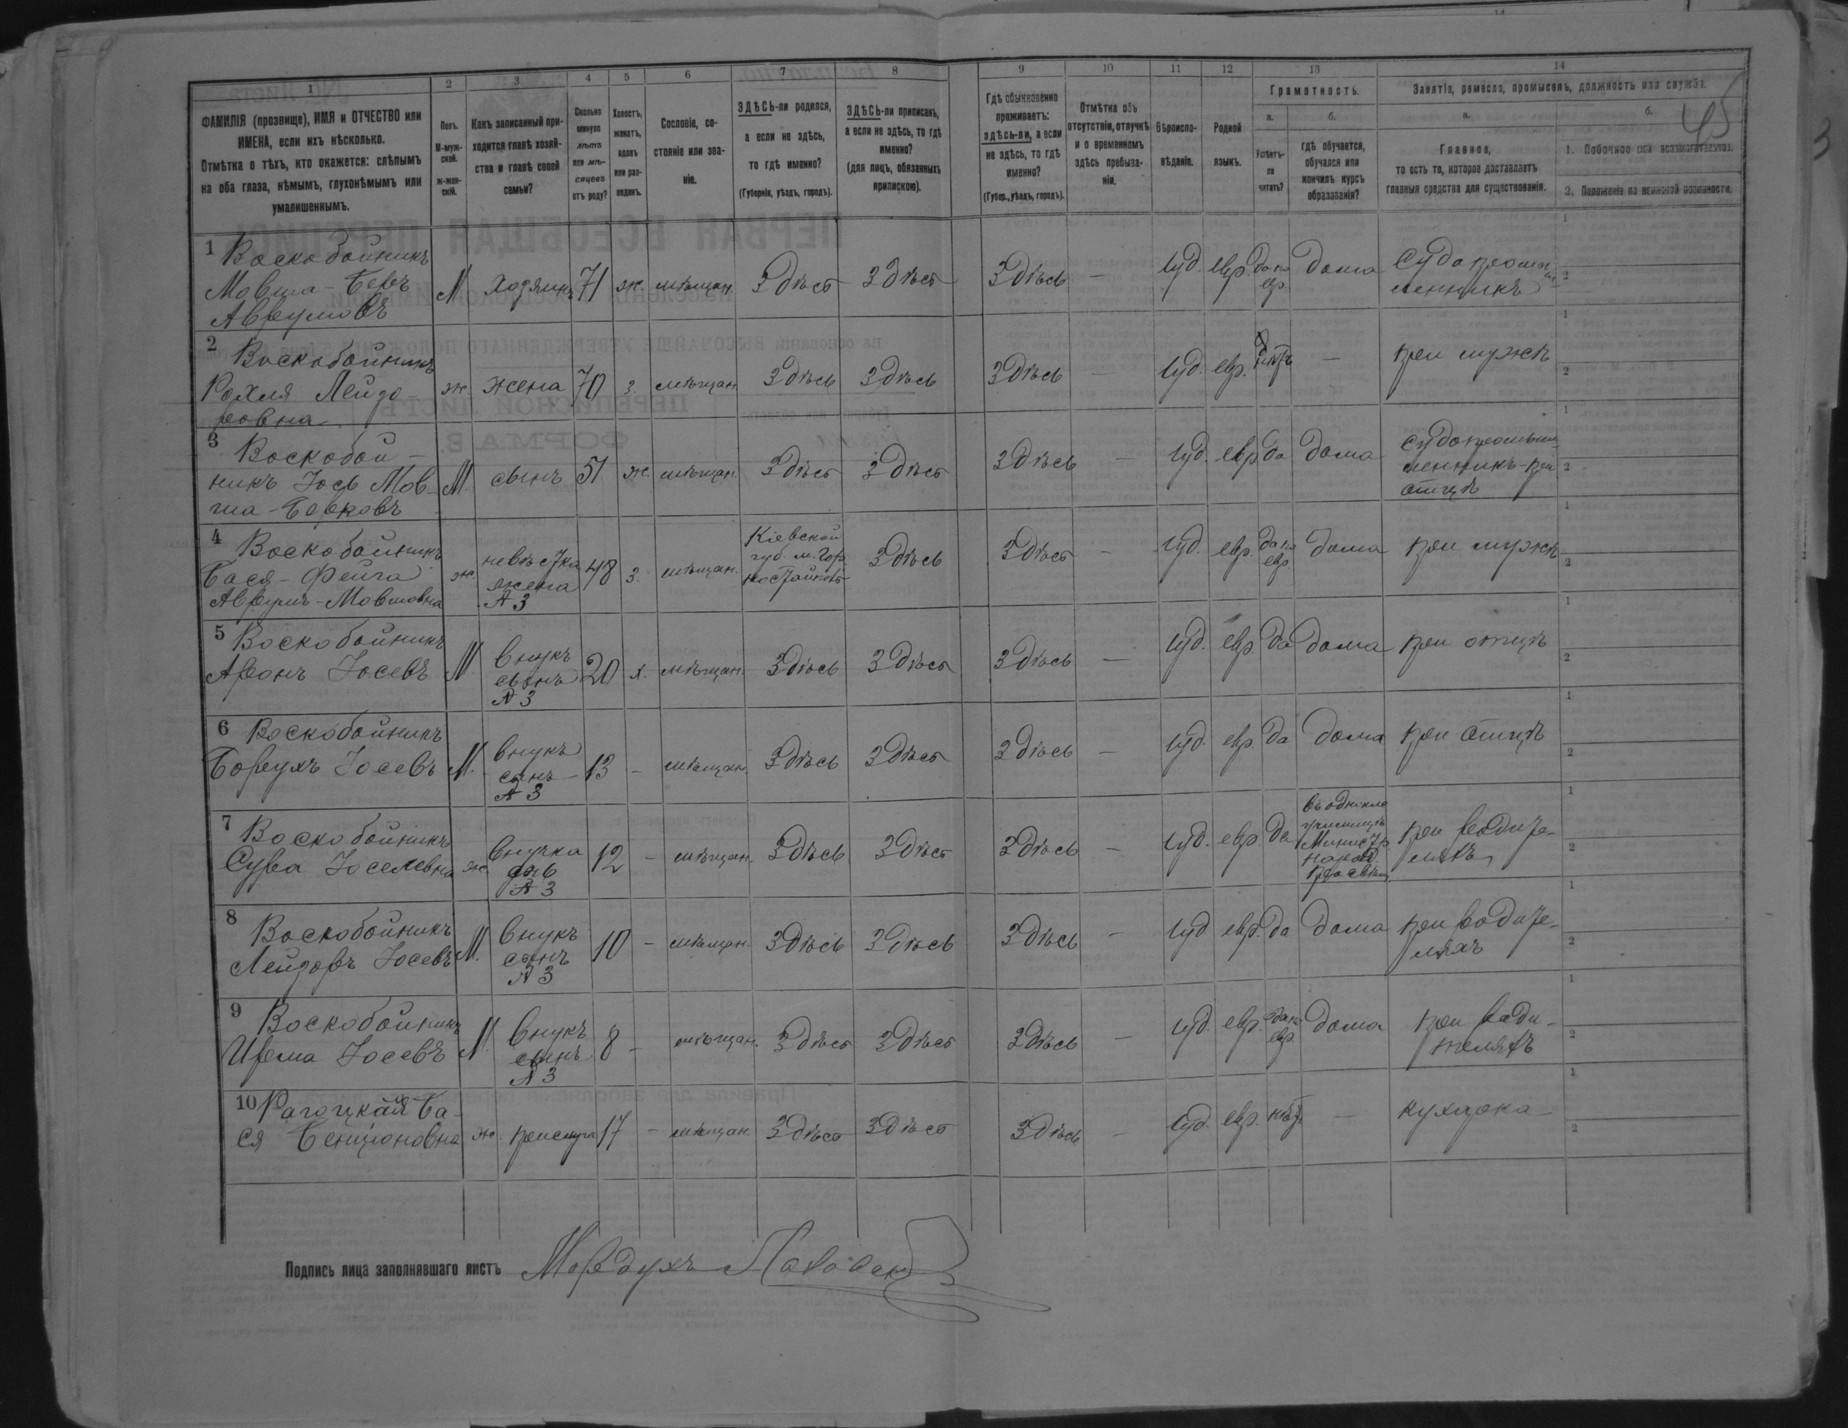 1 2 3 4 5 6 7 8 9 10 11 12 13 14
ФАМИЛІЯ (прозвище), ИМЯ и ОТЧЕСТВО или
ИМЕНА, если ихъ нѣсколько.
Отмѣтка о тѣхъ, кто окажется: слѣпымъ
на оба глаза, нѣмымъ, глухонѣмымъ или
умалишеннымъ.
Полъ.
М-муж-
ской.
Ж-жен-
скій.
Какъ записанный при-
ходится главѣ хозяй-
ства и главѣ своей
семьи?
Сколько
минуло
лѣтъ
или мѣ-
сяцевъ
отъ роду?
Холостъ,
женатъ,
вдовъ
или раз-
веденъ.
Сословіе, со-
стояніе или зва-
ніе.
ЗДѢСЬ-ли родился,
а если не здѣсь,
то гдѣ именно?
(Губернія, уѣздъ, городъ).
ЗДѢСЬ-ли приписанъ,
а если не здѣсь, то гдѣ
именно?
(для лицъ, обязанныхъ
припискою).
Гдѣ обыкновенно
проживаетъ:
здѣсь-ли, а если
не здѣсь, то гдѣ
именно?
(Губер., уѣздъ, городъ).
Отмѣтка объ
отсутствіи, отлучкѣ
и о временномъ
здѣсь пребыва-
ніи.
Вѣроиспо-
вѣданіе.
Родной
языкъ.
Грамотность.
а.
Умѣетъ-
ли
читать?
б.
гдѣ обучается,
обучался или
кончилъ курсъ
образованія?
Занятіе, ремесло, промыселъ, должность или служба.
а.
Главное,
то есть то, которое доставляетъ
главныя средства для существованія.
б.
1. Побочное или вспомогательное.
2. Положеніе по воинской повинности.
45
1 Воскобойникъ
Мовша-Беръ
Аврумовъ
М хозяинъ 71 ж. мѣщан. Здѣсь Здѣсь Здѣсь — Іуд. евр. да по
евр. дома
2 Воскобойникъ
Рохля Лейзо
ровна
ж. жена 70 з. мѣщан. Здѣсь Здѣсь Здѣсь — Іуд. евр. нѣтъ — при мужѣ
3 Воскобой-
никъ Іось Мов-
ша-Берковъ
М сынъ 51 ж. мѣщан. Здѣсь Здѣсь Здѣсь — Іуд. евр. да дома
4 Воскобойникъ
Бася-Фейга
Аврумъ-Мовшовна
ж. невѣстка
жена
№ 3
48 з. мѣщан.
Кіевской
губ. м. Гор
ностайполь
Здѣсь Здѣсь — Іуд. евр. да по
евр дома при мужѣ
5 Воскобойникъ
Аронъ Іосевъ
М. внукъ
сынъ
№ 3
20 х. мѣщан. Здѣсь Здѣсь Здѣсь — Іуд. евр. да дома при отцѣ
6 Воскобойникъ
Борухъ Іосевъ
М. внукъ
сынъ
№ 3
13 — мѣщан. Здѣсь Здѣсь Здѣсь — Іуд. евр. да дома при отцѣ
7 Воскобойникъ
Сура Іоселевна
ж. внучка
№ 3
12 — мѣщан. Здѣсь Здѣсь Здѣсь — Іуд. евр. да
при родите-
ляхъ
8 Воскобойникъ
Лейзоръ Іосевъ
М. внукъ
сынъ
№ 3
10 — мѣщан. Здѣсь Здѣсь Здѣсь — Іуд евр. да дома при родите-
ляхъ
9 Воскобойникъ
Ирма Іосевъ
М. внукъ
сынъ
№ 3
8 — мѣщан. Здѣсь Здѣсь Здѣсь — Іуд. евр. да по
евр. дома при роди-
теляхъ
10 Рагоцкая Ба-
ся Бенціоновна
ж. прислуга 17 — мѣщан. Здѣсь Здѣсь Здѣсь Іуд. евр. нѣтъ — кухарка
Подпись лица заполнявшаго листъ Мордухъ